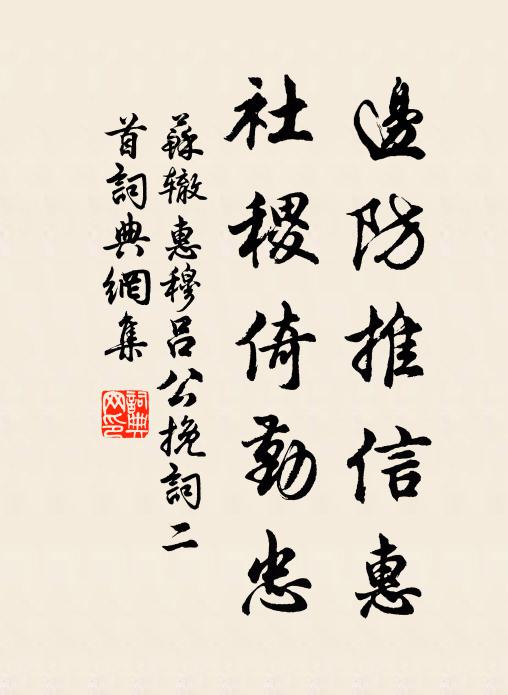 邊防推信惠
社稷倚勤忠
蘇辙惠穆呂公挽詞二
首詞典網集
詞典网印